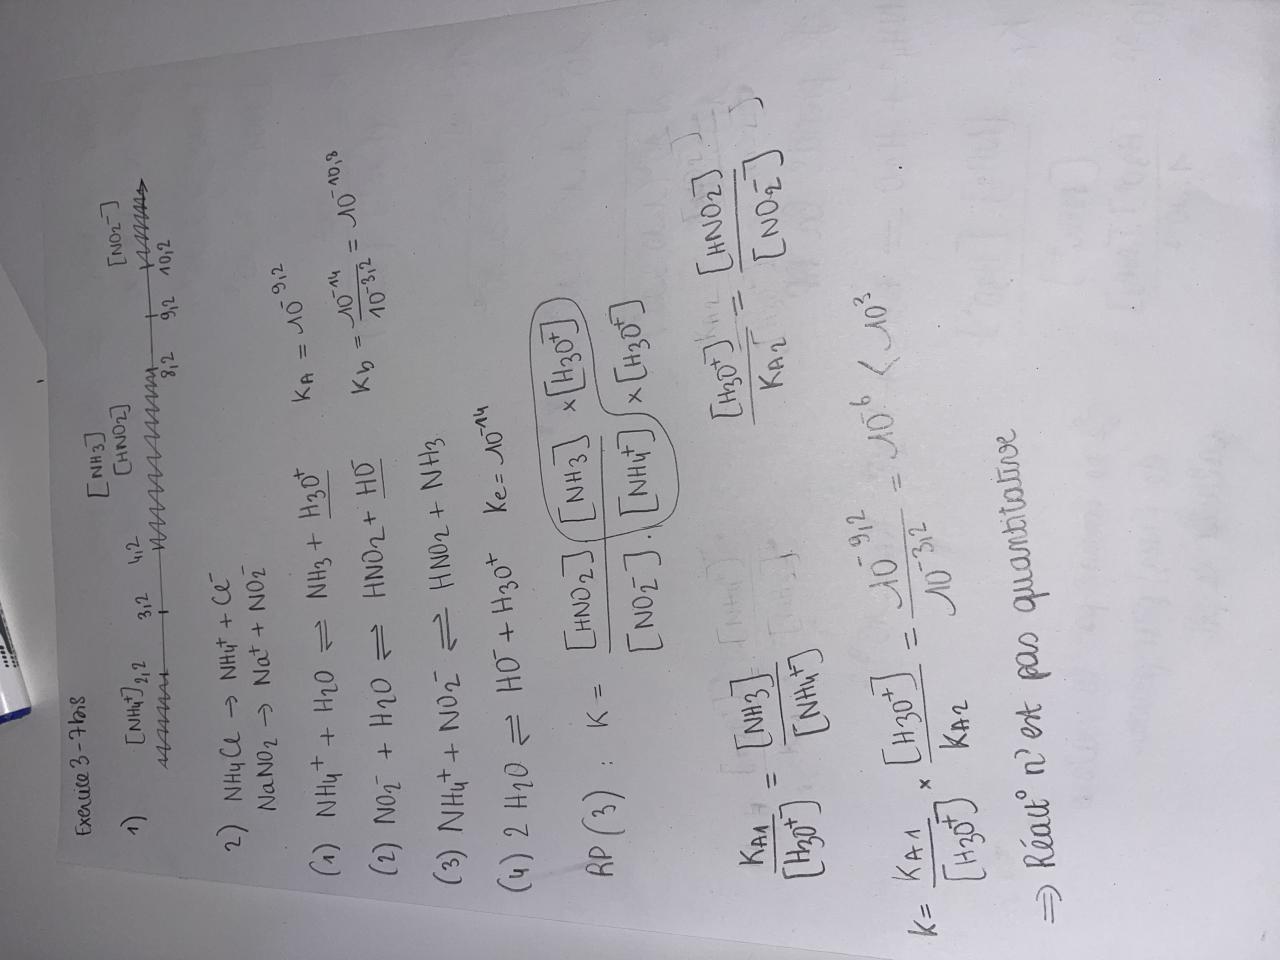 Exercice 3-7bis
[NH3]
1) [NH4+] [HNO2] [NO2-]
2,2 3,2 4,2 8,2 9,2 10,2
2) NH4Cl → NH4+ + Cl-
NaNO2 → Na+ + NO2-
(1) NH4+ + H2O ⇌ NH3 + H3O+ KA = 10^-9,2
(2) NO2- + H2O ⇌ HNO2 + HO- Kb = 10^-14 / 10^-3,2 = 10^-10,8
(3) NH4+ + NO2- ⇌ HNO2 + NH3
(4) 2 H2O ⇌ HO- + H3O+ Ke = 10^-14
RP (3) : K = [HNO2] . [NH3] × [H3O+] / [NO2-] . [NH4+] × [H3O+]
KA1 / [H3O+] = [NH3] / [NH4+] [H3O+] / KA2 = [HNO2] / [NO2-]
K = KA1 / [H3O+] × [H3O+] / KA2 = 10^-9,2 / 10^-3,2 = 10^-6 < 10^3
⇒ Réact° n'est pas quantitative